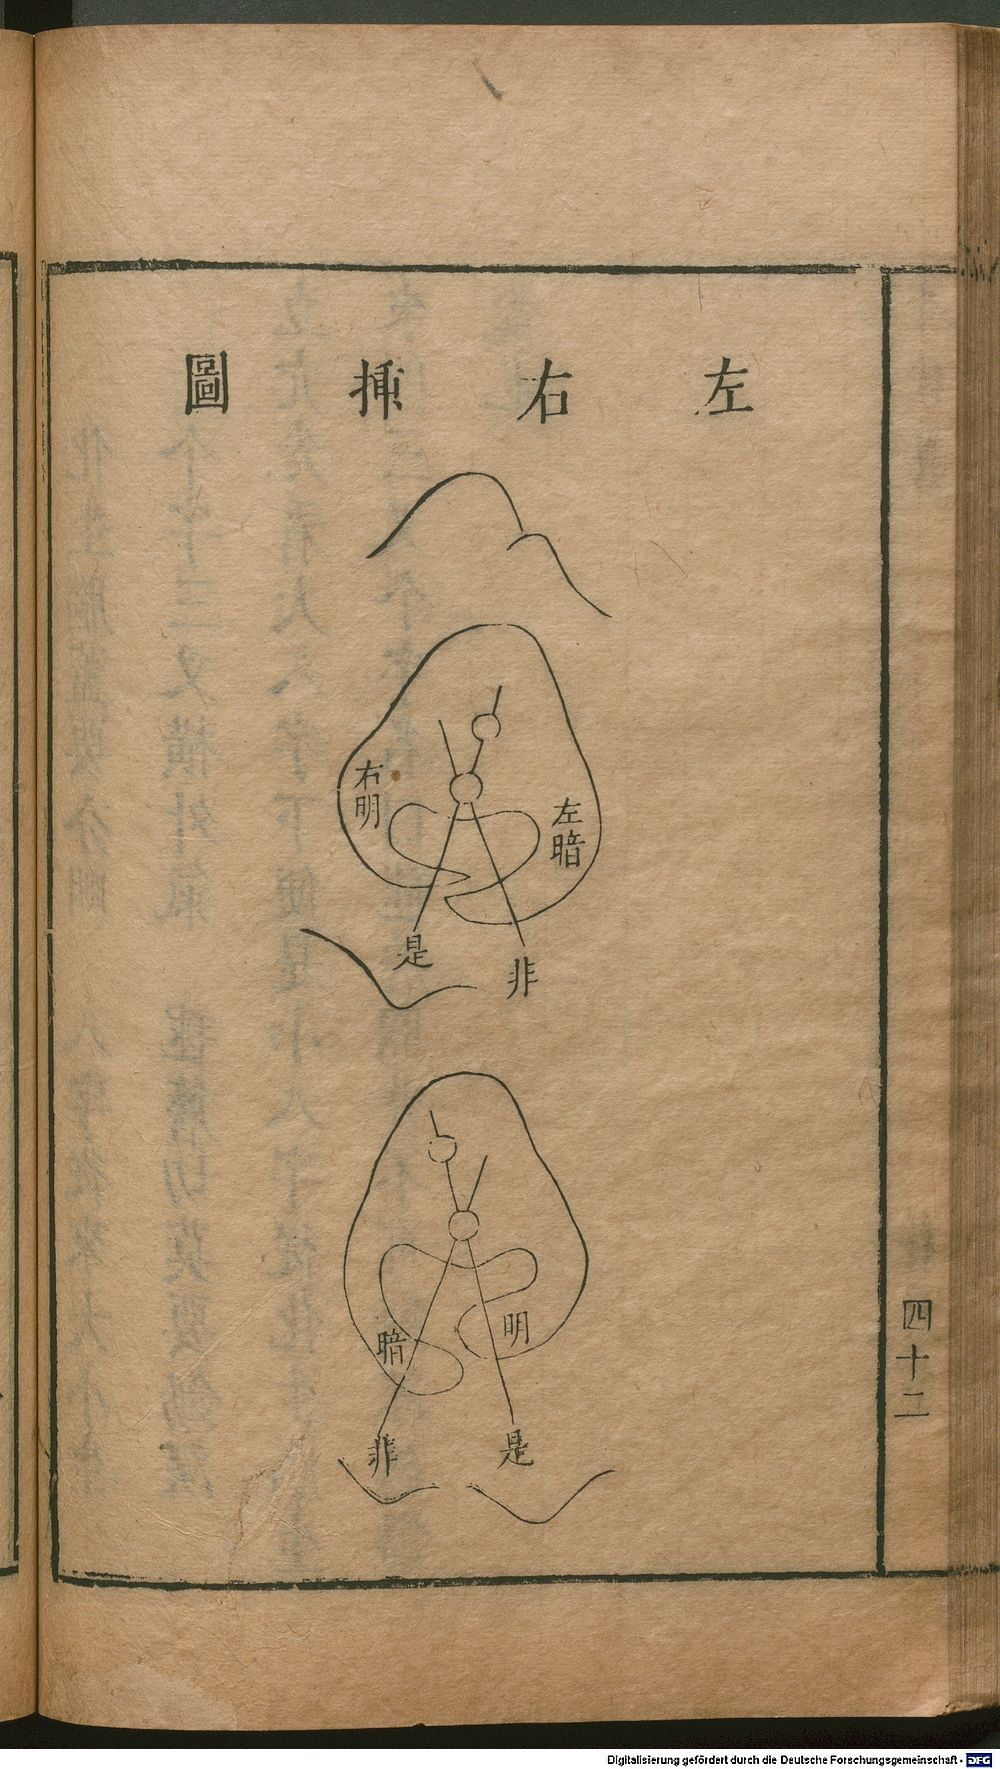 左右揷圖
右明
左暗
是
非
暗
明
非
是
四十二
Digitalisierung gefördert durch die Deutsche Forschungsgemeinschaft - DFG